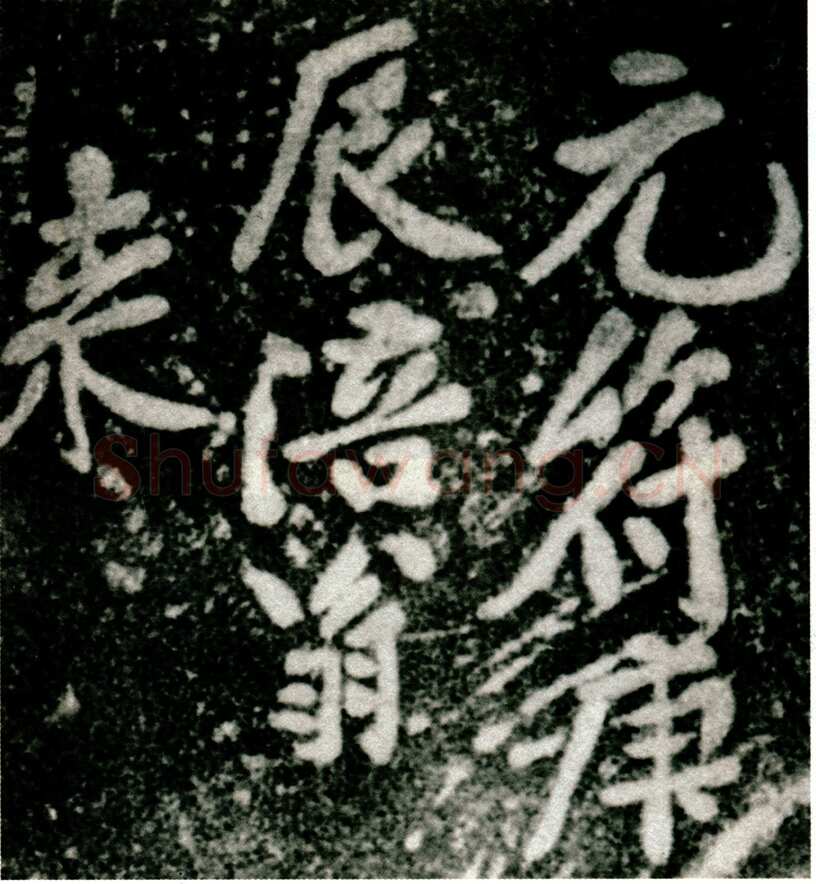 元符庚
辰涪翁
来
Shufawang.CN